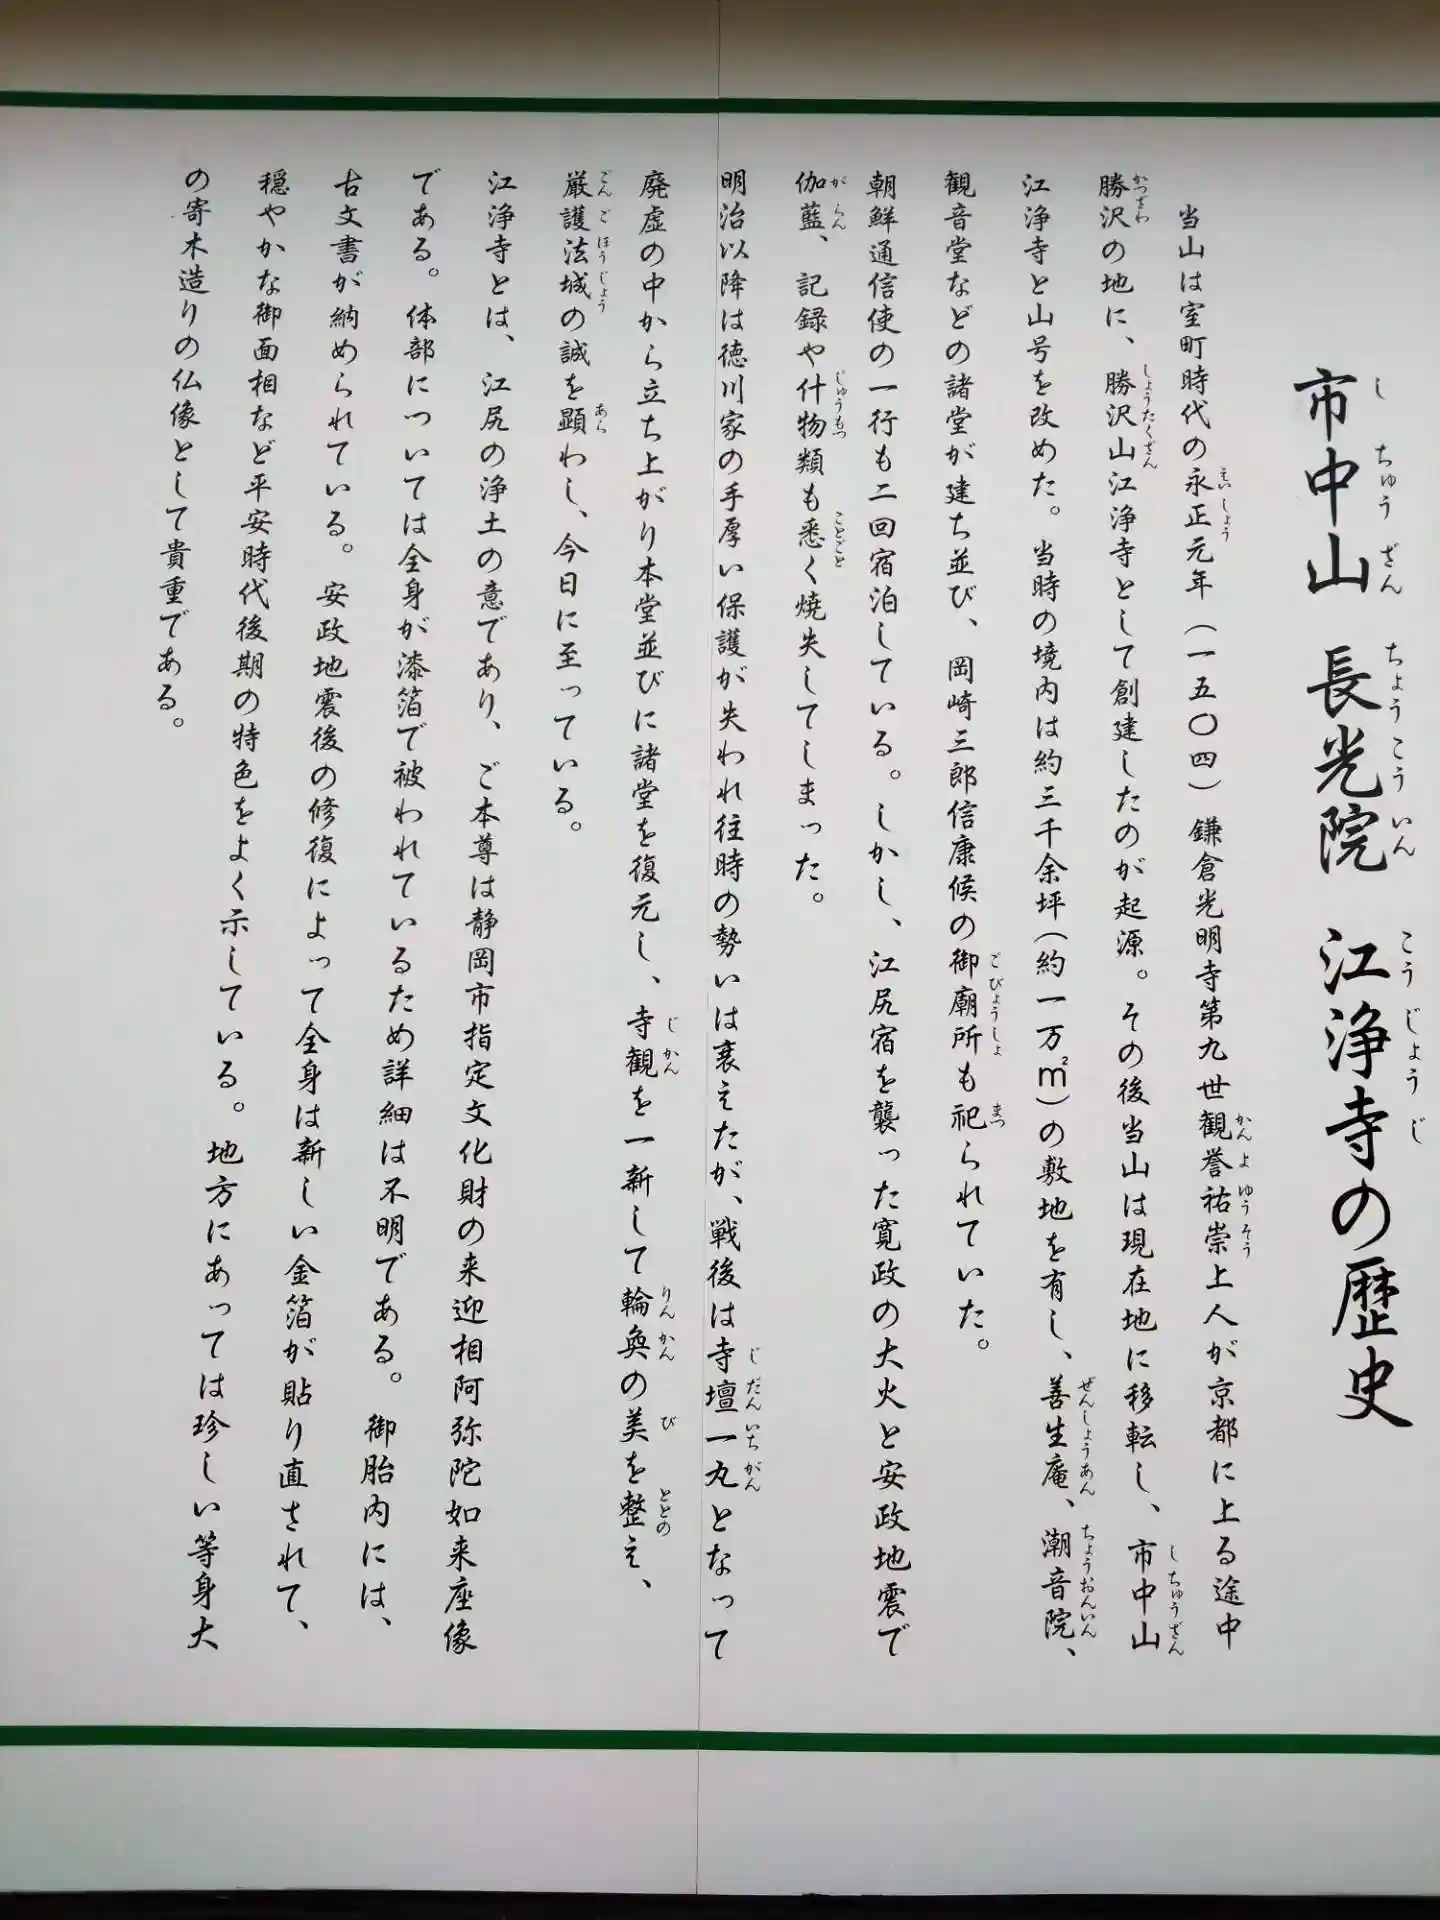 市中山 長光院 江浄寺の歴史
当山は室町時代の永正元年(一五〇四)鎌倉光明寺第九世観誉祐崇上人が京都に上る途中
勝沢の地に、勝沢山江浄寺として創建したのが起源。その後当山は現在地に移転し、市中山
江浄寺と山号を改めた。当時の境内は約三千余坪(約一万㎡)の敷地を有し、善生庵、潮音院、
観音堂などの諸堂が建ち並び、岡崎三郎信康候の御廟所も祀られていた。
朝鮮通信使の一行も二回宿泊している。しかし、江尻宿を襲った寛政の大火と安政地震で
伽藍、記録や什物類も悉く焼失してしまった。
明治以降は徳川家の手厚い保護が失われ往時の勢いは衰えたが、戦後は寺壇一丸となって
廃虚の中から立ち上がり本堂並びに諸堂を復元し、寺観を一新して輪奐の美を整え、
厳護法城の誠を顕わし、今日に至っている。
江浄寺とは、江尻の浄土の意であり、ご本尊は静岡市指定文化財の来迎相阿弥陀如来座像
である。体部については全身が漆箔で被われているため詳細は不明である。御胎内には、
古文書が納められている。安政地震後の修復によって全身は新しい金箔が貼り直されて、
穏やかな御面相など平安時代後期の特色をよく示している。地方にあっては珍しい等身大
の寄木造りの仏像として貴重である。